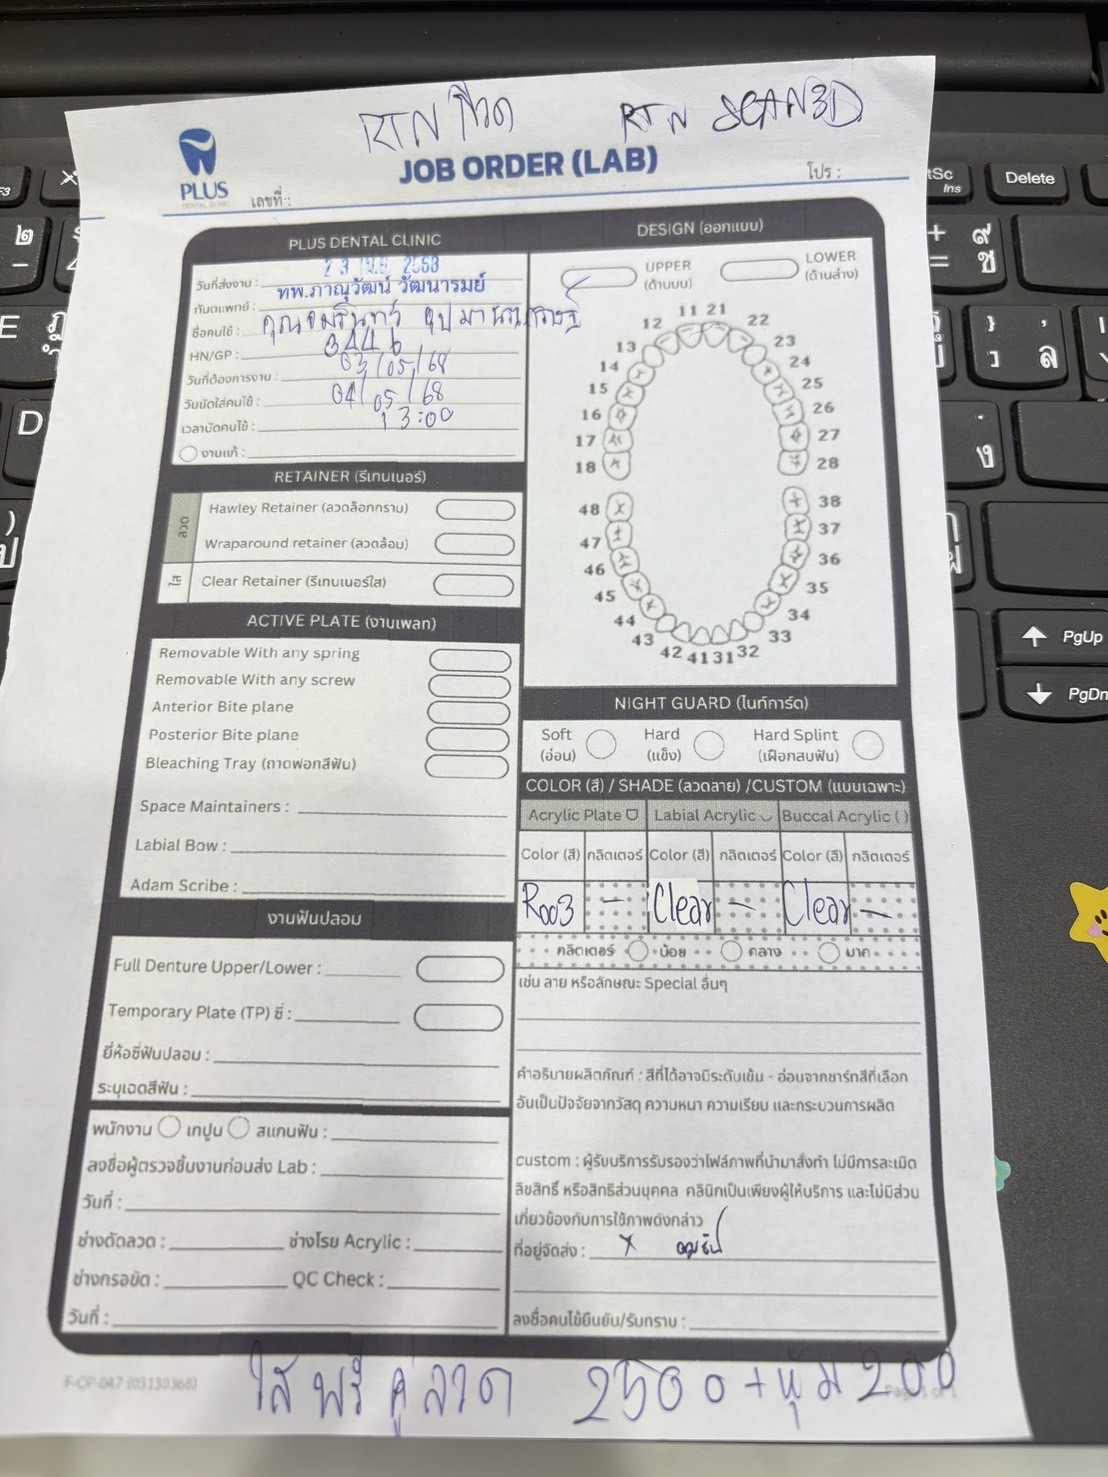 RTN ลวด RTN SCAN3D
JOB ORDER (LAB)
PLUS
DENTAL CLINIC
เลขที่ :
โปร :
PLUS DENTAL CLINIC
วันที่ส่งงาน : 23 เม.ย. 2568
ทันตแพทย์ : ทพ.ภาณุวัฒน์ วัฒนารมย์
ชื่อคนไข้ : คุณอมรินทร์
HN/GP : 3446
วันที่ต้องการงาน : 03/05/68
วันนัดใส่คนไข้ : 04/05/68
เวลานัดคนไข้ : 13:00
งานแก้ :
RETAINER (รีเทนเนอร์)
ลวด
Hawley Retainer (ลวดล็อกกราม)
Wraparound retainer (ลวดล้อม)
ใส
Clear Retainer (รีเทนเนอร์ใส)
ACTIVE PLATE (งานเพลท)
Removable With any spring
Removable With any screw
Anterior Bite plane
Posterior Bite plane
Bleaching Tray (ถาดฟอกสีฟัน)
Space Maintainers :
Labial Bow :
Adam Scribe :
งานฟันปลอม
Full Denture Upper/Lower :
Temporary Plate (TP) ซี่ :
ยี่ห้อซี่ฟันปลอม :
ระบุเฉดสีฟัน :
พนักงาน เทปูน สแกนฟัน :
ลงชื่อผู้ตรวจชิ้นงานก่อนส่ง Lab :
วันที่ :
ช่างดัดลวด : ช่างโรย Acrylic :
ช่างกรอขัด : QC Check :
วันที่ :
DESIGN (ออกแบบ)
UPPER
(ด้านบน)
LOWER
(ด้านล่าง)
11 21
12 22
13 23
14 24
15 25
16 26
17 27
18 28
48 38
47 37
46 36
45 35
44 34
43 33
42 41 31 32
NIGHT GUARD (ไนท์การ์ด)
Soft
(อ่อน)
Hard
(แข็ง)
Hard Splint
(เฝือกสบฟัน)
COLOR (สี) / SHADE (ลวดลาย) /CUSTOM (แบบเฉพาะ)
Acrylic Plate Labial Acrylic Buccal Acrylic ( )
Color (สี) กลิตเตอร์ Color (สี) กลิตเตอร์ Color (สี) กลิตเตอร์
R003 - Clear - Clear -
กลิตเตอร์ น้อย กลาง มาก
เช่น ลาย หรือลักษณะ Special อื่นๆ
คำอธิบายผลิตภัณฑ์ : สีที่ได้อาจมีระดับเข้ม - อ่อนจากชาร์ทสีที่เลือก
อันเป็นปัจจัยจากวัสดุ ความหนา ความเรียบ และกระบวนการผลิต
custom : ผู้รับบริการรับรองว่าไฟล์ภาพที่นำมาสั่งทำ ไม่มีการละเมิด
ลิขสิทธิ์ หรือสิทธิส่วนบุคคล คลินิกเป็นเพียงผู้ให้บริการ และไม่มีส่วน
เกี่ยวข้องกับการใช้ภาพดังกล่าว
ที่อยู่จัดส่ง : x
ลงชื่อคนไข้ยืนยัน/รับทราบ :
F-OP-047 (03130368)
Page 1 of 1
ใสฟรีคู่ลวด 2500 + หุ้ม 200
tSc
Ins
Delete
PgUp
PgDn